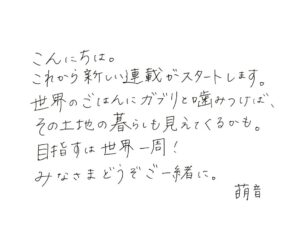 こんにちは。
これから新しい連載がスタートします。
世界のごはんにガブリと噛みつけば、
その土地の暮らしも見えてくるかも。
目指すは世界一周！
みなさまどうぞご一緒に。
萌音